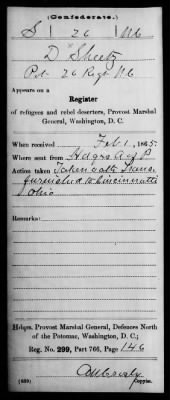 (Confederate.)
S | 26 | N C
D Sheetz
Pvt. 26 Regt N C
Appears on a
Register
of refugees and rebel deserters, Provost Marshal
General, Washington, D. C.
When received Feb 1, 1865.
Where sent from Hdqrs A of P
Action taken Taken oath Trans.
furnished to Cincinnatti
Ohio
Remarks:
Hdqrs. Provost Marshal General, Defences North
of the Potomac, Washington, D. C.
Reg. No. 299, Part 766, Page 146
(639)
Copyist.